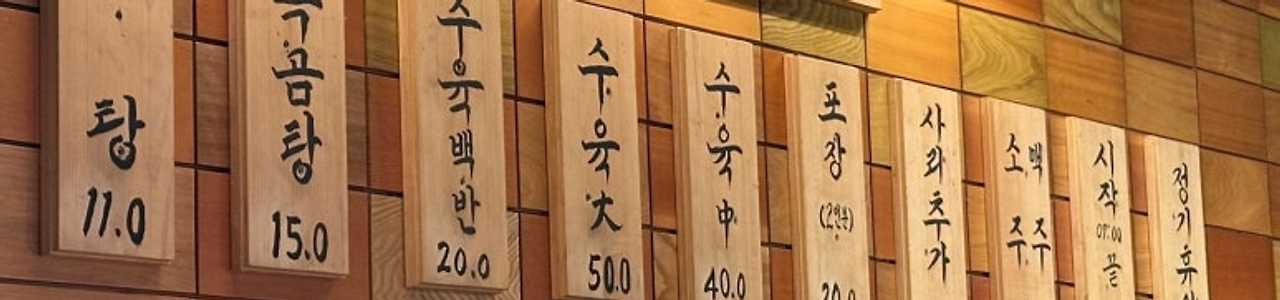 탕
11.0
곰탕
15.0
수육백반
20.0
수육大
50.0
수육中
40.0
포장
(2인분)
사리추가
소주
맥주
시작
끝
정기휴